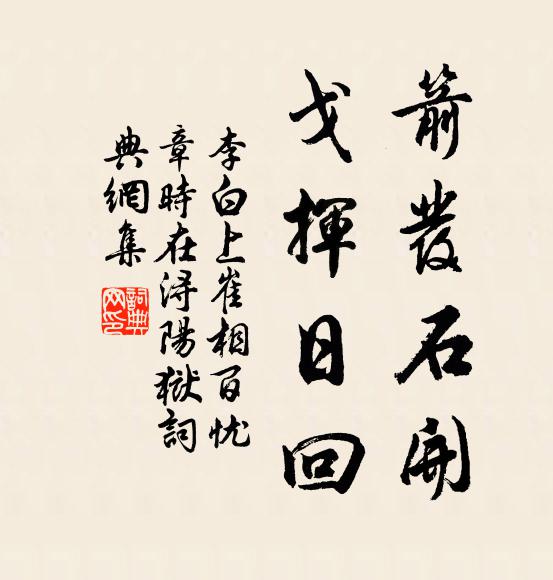 箭發石開
戈揮日回
李白上崔相百忧
章時在浔陽獄詞
典網集
詞典网印